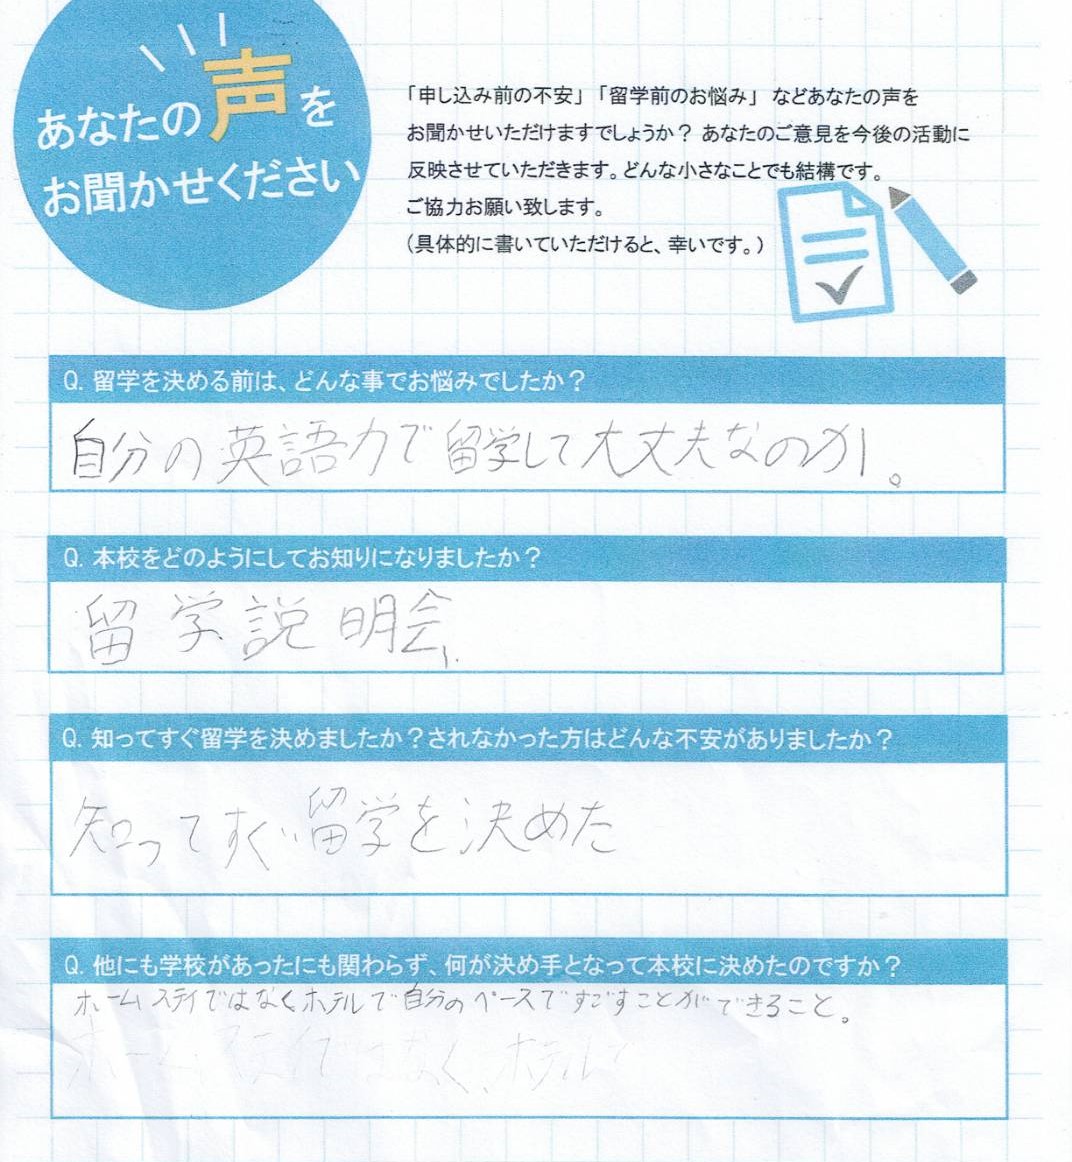 あなたの声を
お聞かせください
「申し込み前の不安」「留学前のお悩み」 などあなたの声を
お聞かせいただけますでしょうか? あなたのご意見を今後の活動に
反映させていただきます。どんな小さなことでも結構です。
ご協力お願い致します。
(具体的に書いていただけると、幸いです。)
Q. 留学を決める前は、どんな事でお悩みでしたか?
自分の英語力で留学して大丈夫なのか。
Q. 本校をどのようにしてお知りになりましたか?
留学説明会
Q. 知ってすぐ留学を決めましたか?されなかった方はどんな不安がありましたか?
知ってすぐ留学を決めた
Q. 他にも学校があったにも関わらず、何が決め手となって本校に決めたのですか?
ホームステイではなく、ホテルで自分のペースですごすことができること。
ホームステイではなく、ホテルで